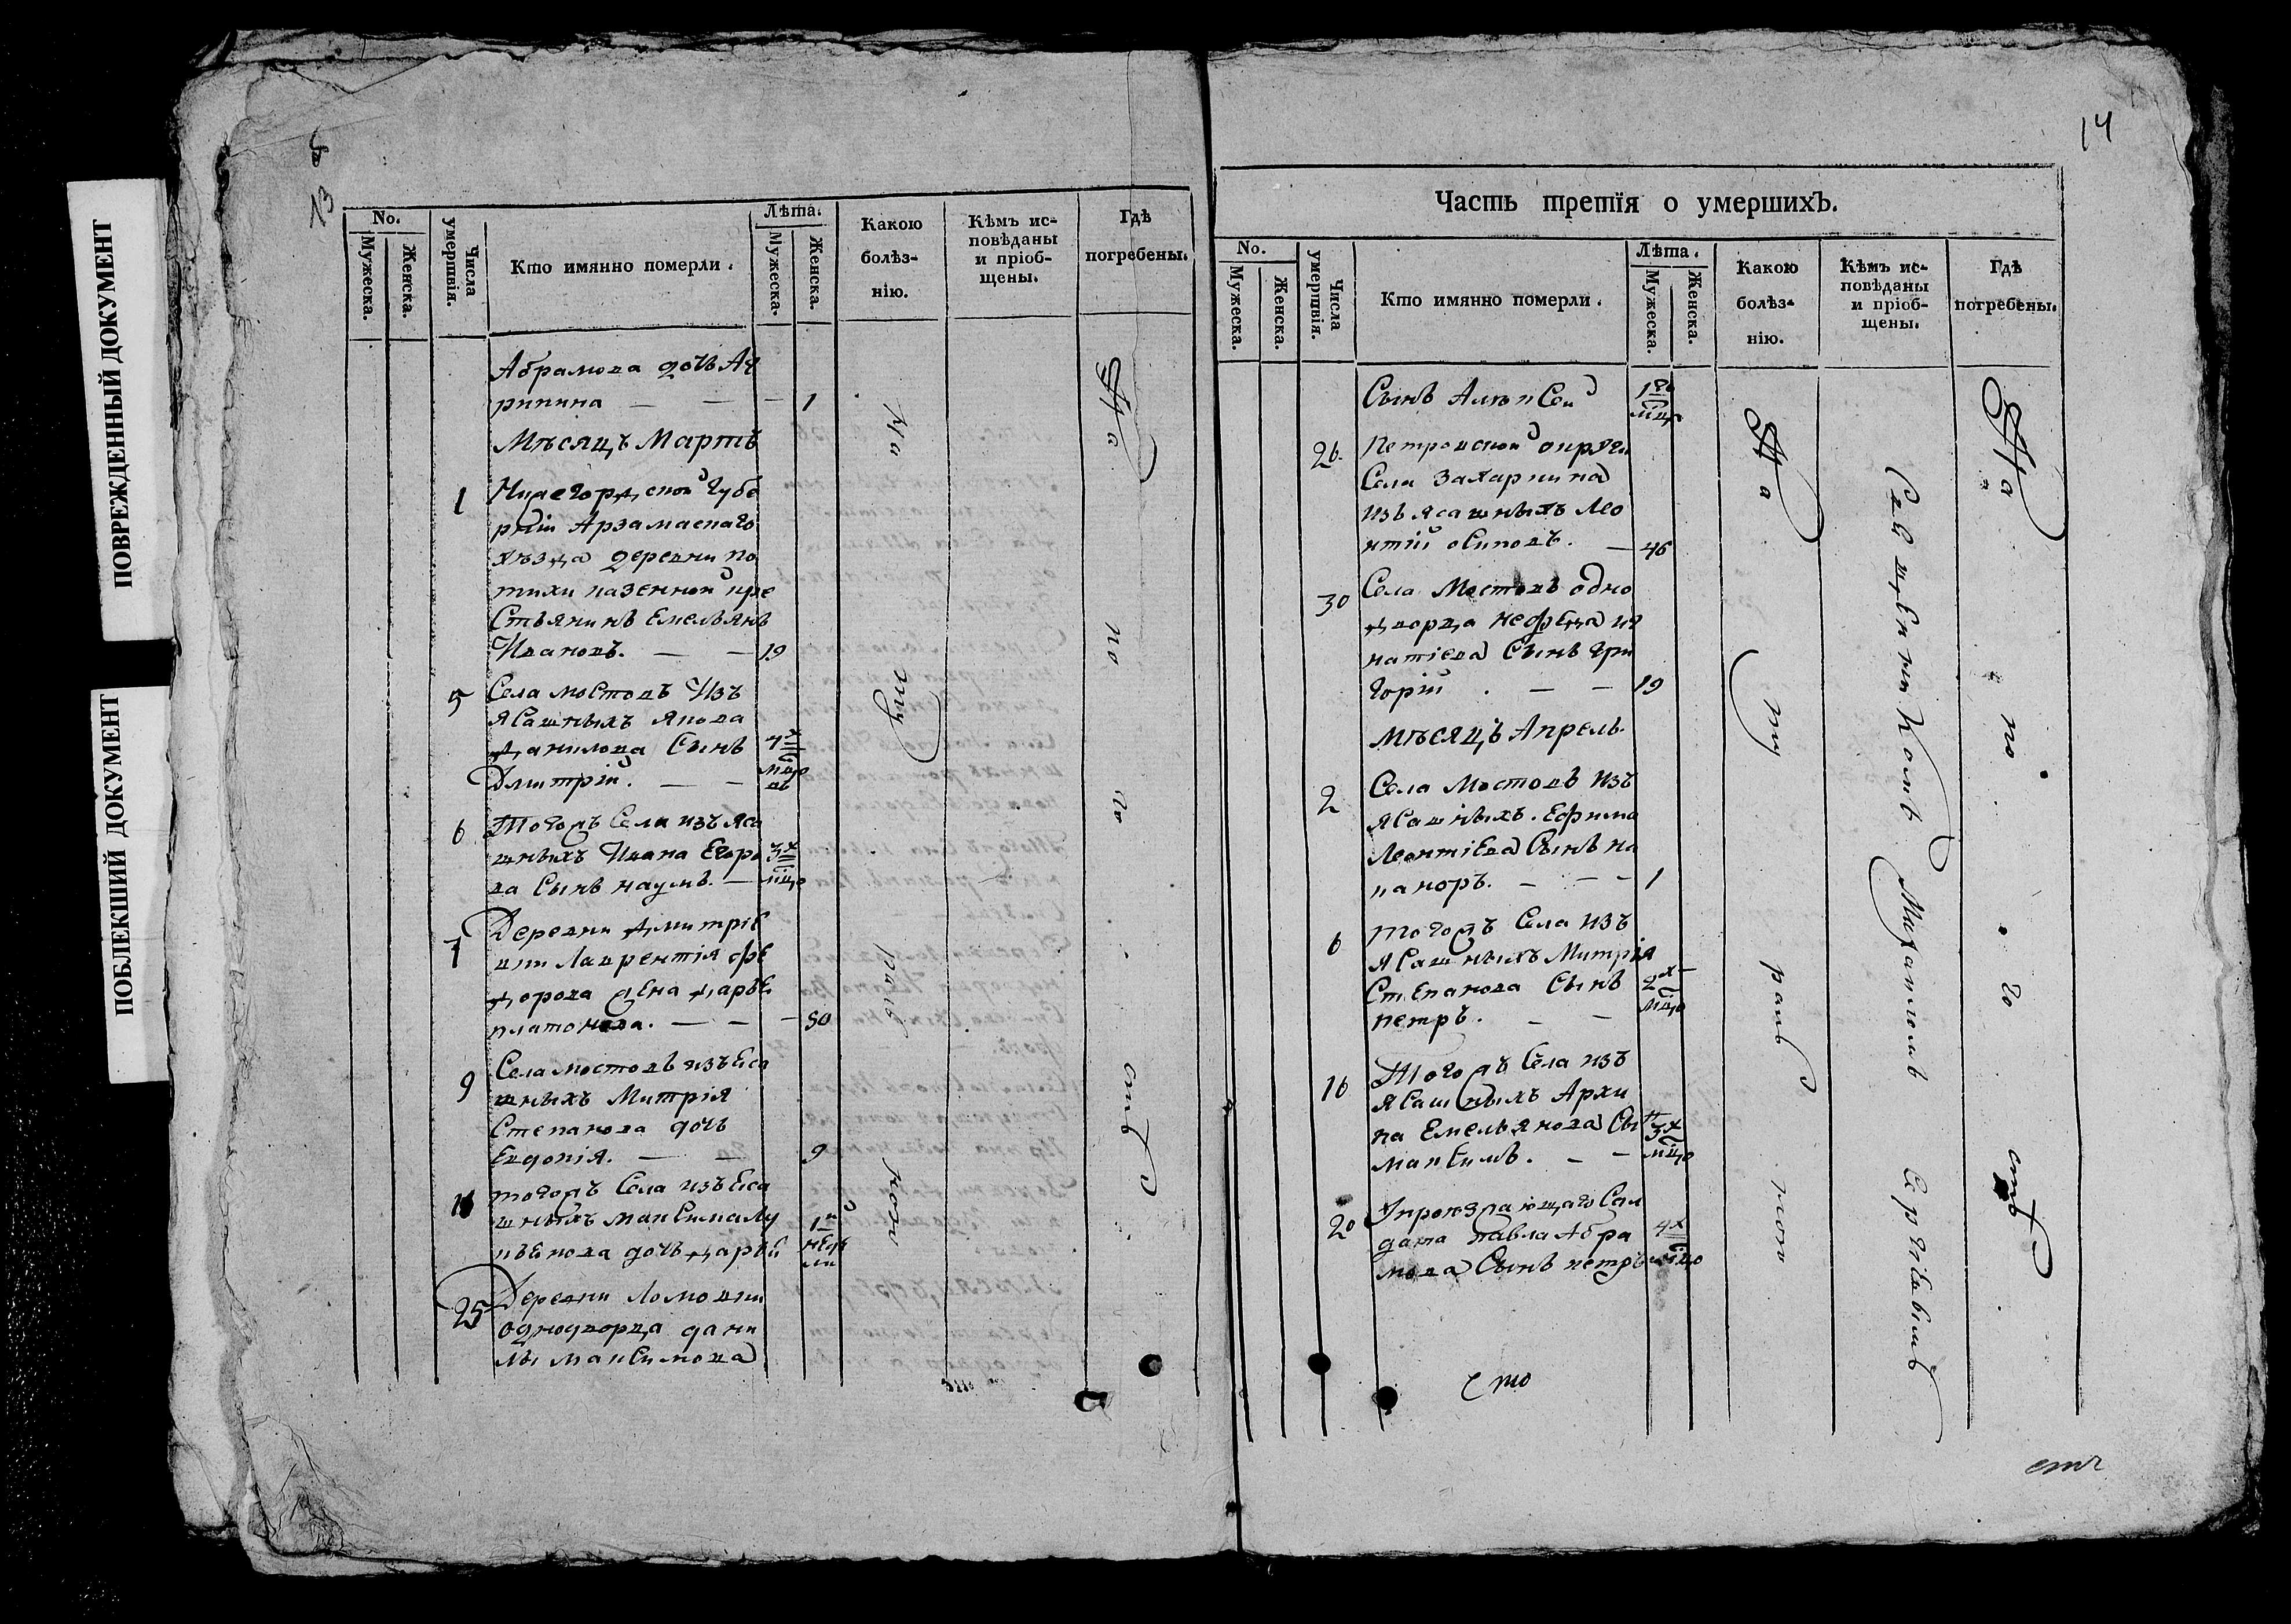 ПОВРЕЖДЕННЫЙ ДОКУМЕНТ
ПОБЛЕКШИЙ ДОКУМЕНТ
13
No.
Мужеска.
Женска.
Числа умершвія.
Кто имянно померли.
Лѣта.
Мужеска.
Женска.
Какою болѣз-нію.
Кѣмъ ис-повѣданы и пріоб-щены.
Гдѣ погребены.
Абрамова дочь Аг
рипина — — — 1
Мѣсяцъ Мартъ
1 Нижегородской Губе
рніи Арзамаскаго
уѣзда деревни по
тихи казенной кре
стьянинъ Емельянъ
Ивановъ. — — 19
5 Села мостовъ Изъ
ясашныхъ Якова
данилова Сынъ 4х
Дмитрій. — — мцовъ
6 Тогожъ Села изъ яса
шныхъ Ивана Егоро 3х
ва Сынъ наумъ. — мцо
7 Деревни дмитріе
вки Лаврентія фе
дорова жена дарья
платонова. — — — 50
9 Села мостовъ изъ еса
шныхъ Митрія
Степанова дочь
Евдокія. — — 9
тогожъ Села изъ еса
шныхъ максима Лу
кьянова дочь дарья 1й недели
25 Деревни Ломовки
однодворца дани
лы максимова
На
ту
раль
ною
На
по
го
стѣ
14
Часть третія о умершихъ.
No.
Мужеска.
Женска.
Числа умершвія.
Кто имянно померли.
Лѣта.
Мужеска.
Женска.
Какою болѣз-нію.
Кѣмъ ис-повѣданы и пріоб-щены.
Гдѣ погребены.
Сынъ Алексей 1го мца
26. Петровской округи
Села Захаркина
изъ ясашныхъ Лео
нтій осиповъ. — 46
30 Села Мостовъ одно
дворца нефеда иг
натіева Сынъ Гри
горій . — — 19
мѣсяцъ Апрель.
2 Села Мостовъ изъ
ясашныхъ. Ефима
Леонтіева Сынъ ни
каноръ. — — — 1
6 тогожъ Села изъ
ясашныхъ Митрія
Степанова Сынъ 2х
петръ. — — мцо
16 Тогожъ Села изъ
ясашныхъ Архи
па Емельянова Сынъ 3х
максимъ. — — мцо
20 дата павла Абра 4х
мова Сынъ петръ мцо
На
ту
раль
ною
Священникомъ Михаиломъ Сергіевымъ
На
по
го
стѣ